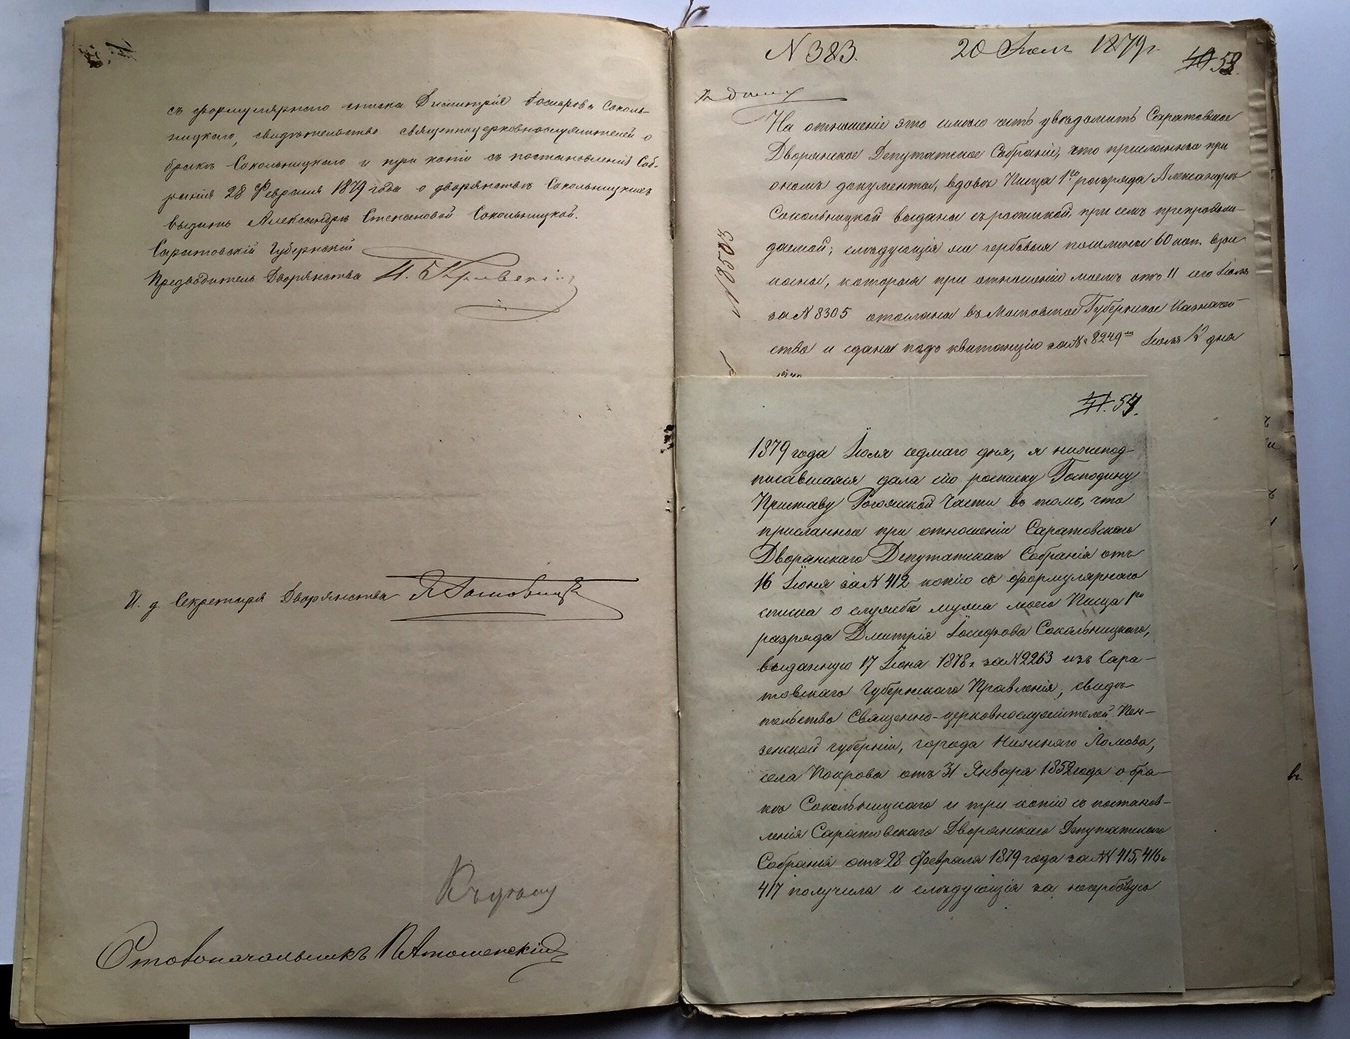 съ формулярнаго списка Димитрія Іосифова Соколь-
ницкаго, свидѣтельство священноцерковнослужителей о
бракѣ Сокольницкаго и три копіи съ постановленія Соб-
ранія 28 Февраля 1879 года о дворянствѣ Сокольницкихъ
выдать Александрѣ Степановой Сокольницкой.
Саратовскій Губернскій
Предводитель Дворянства
И. д. Секретаря Дворянства
Къ дѣлу
Столоначальникъ
N 383. 20 Іюля 1879 г. 53.
Къ дѣлу
N 8503
На отношеніе это имѣю честь увѣдомить Саратовское
Дворянское Депутатское Собраніе, что присланные при
ономъ документы, вдовѣ Писца 1го разряда Александрѣ
Сокольницкой выданы съ роспиской, при семъ препровож-
даемой; слѣдующія же гербовыя пошлины 60 коп. взы-
сканы, которыя при отношеніи моемъ отъ 11 сего Іюля
за N 8305 отосланы въ Московское Губернское Казначей-
ство и сданы подъ квитанцію за N 8249 Іюля 12 дня
54.
1879 года Іюля седмаго дня, я нижепод-
писавшаяся дала сію росписку Господину
Приставу Рогожской Части въ томъ, что
присланные при отношеніи Саратовскаго
Дворянскаго Депутатскаго Собранія отъ
16 Іюня за N 412 копію съ формулярнаго
списка о службѣ мужа моего Писца 1го
разряда Дмитрія Іосифова Сокольницкаго,
выданную 17 Іюня 1878 г. за N 2263 изъ Сара-
товскаго Губернскаго Правленія, свидѣ-
тельство Священно-церковнослужителей Пен-
зенской губерніи, города Нижняго Ломова,
села Покрова отъ 31 Января 1852 года о бра-
кѣ Сокольницкаго и три копіи съ постанов-
ленія Саратовскаго Дворянскаго Депутатскаго
Собранія отъ 28 Февраля 1879 года за NN 415, 416 и
417 получила и слѣдующія за негербовую